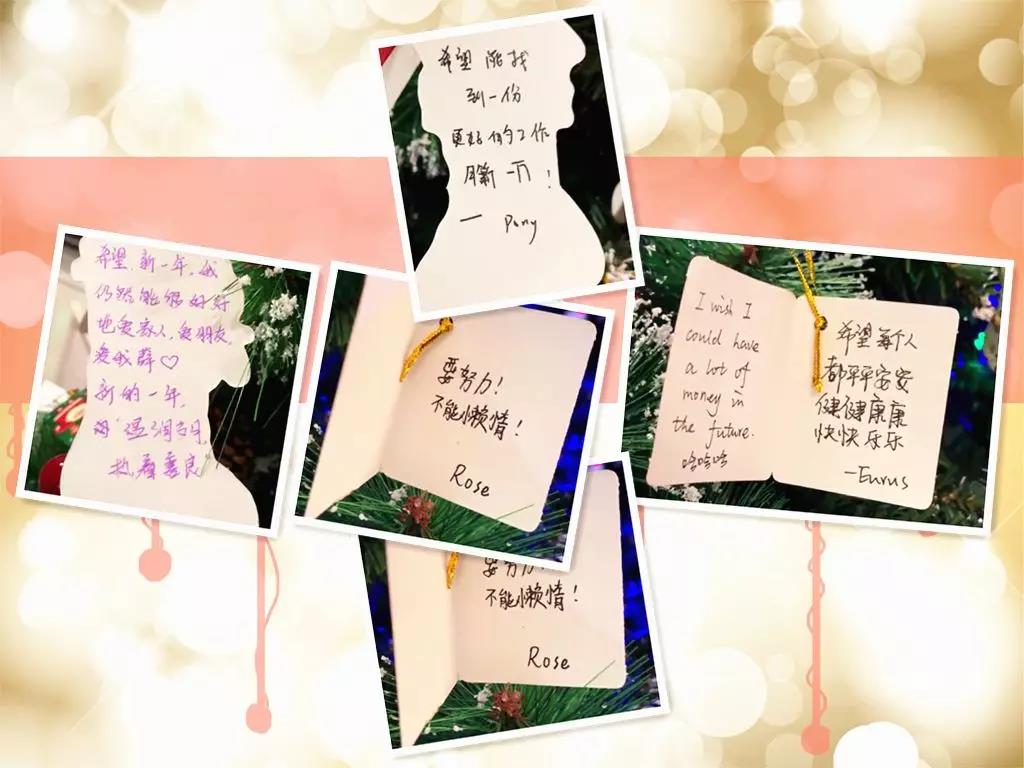 希望能找
到一份
更好的工作
月薪一万！
— Pony
希望新一年，我
仍然能够好好
地爱家人，爱朋友，
爱我群♡
新的一年，
温润
执着善良
要努力！
不能懒惰！
Rose
I wish I
could have
a lot of
money in
the future.
哈哈哈
希望每个人
都平平安安
健健康康
快快乐乐
—Eurus
要努力！
不能懒惰！
Rose